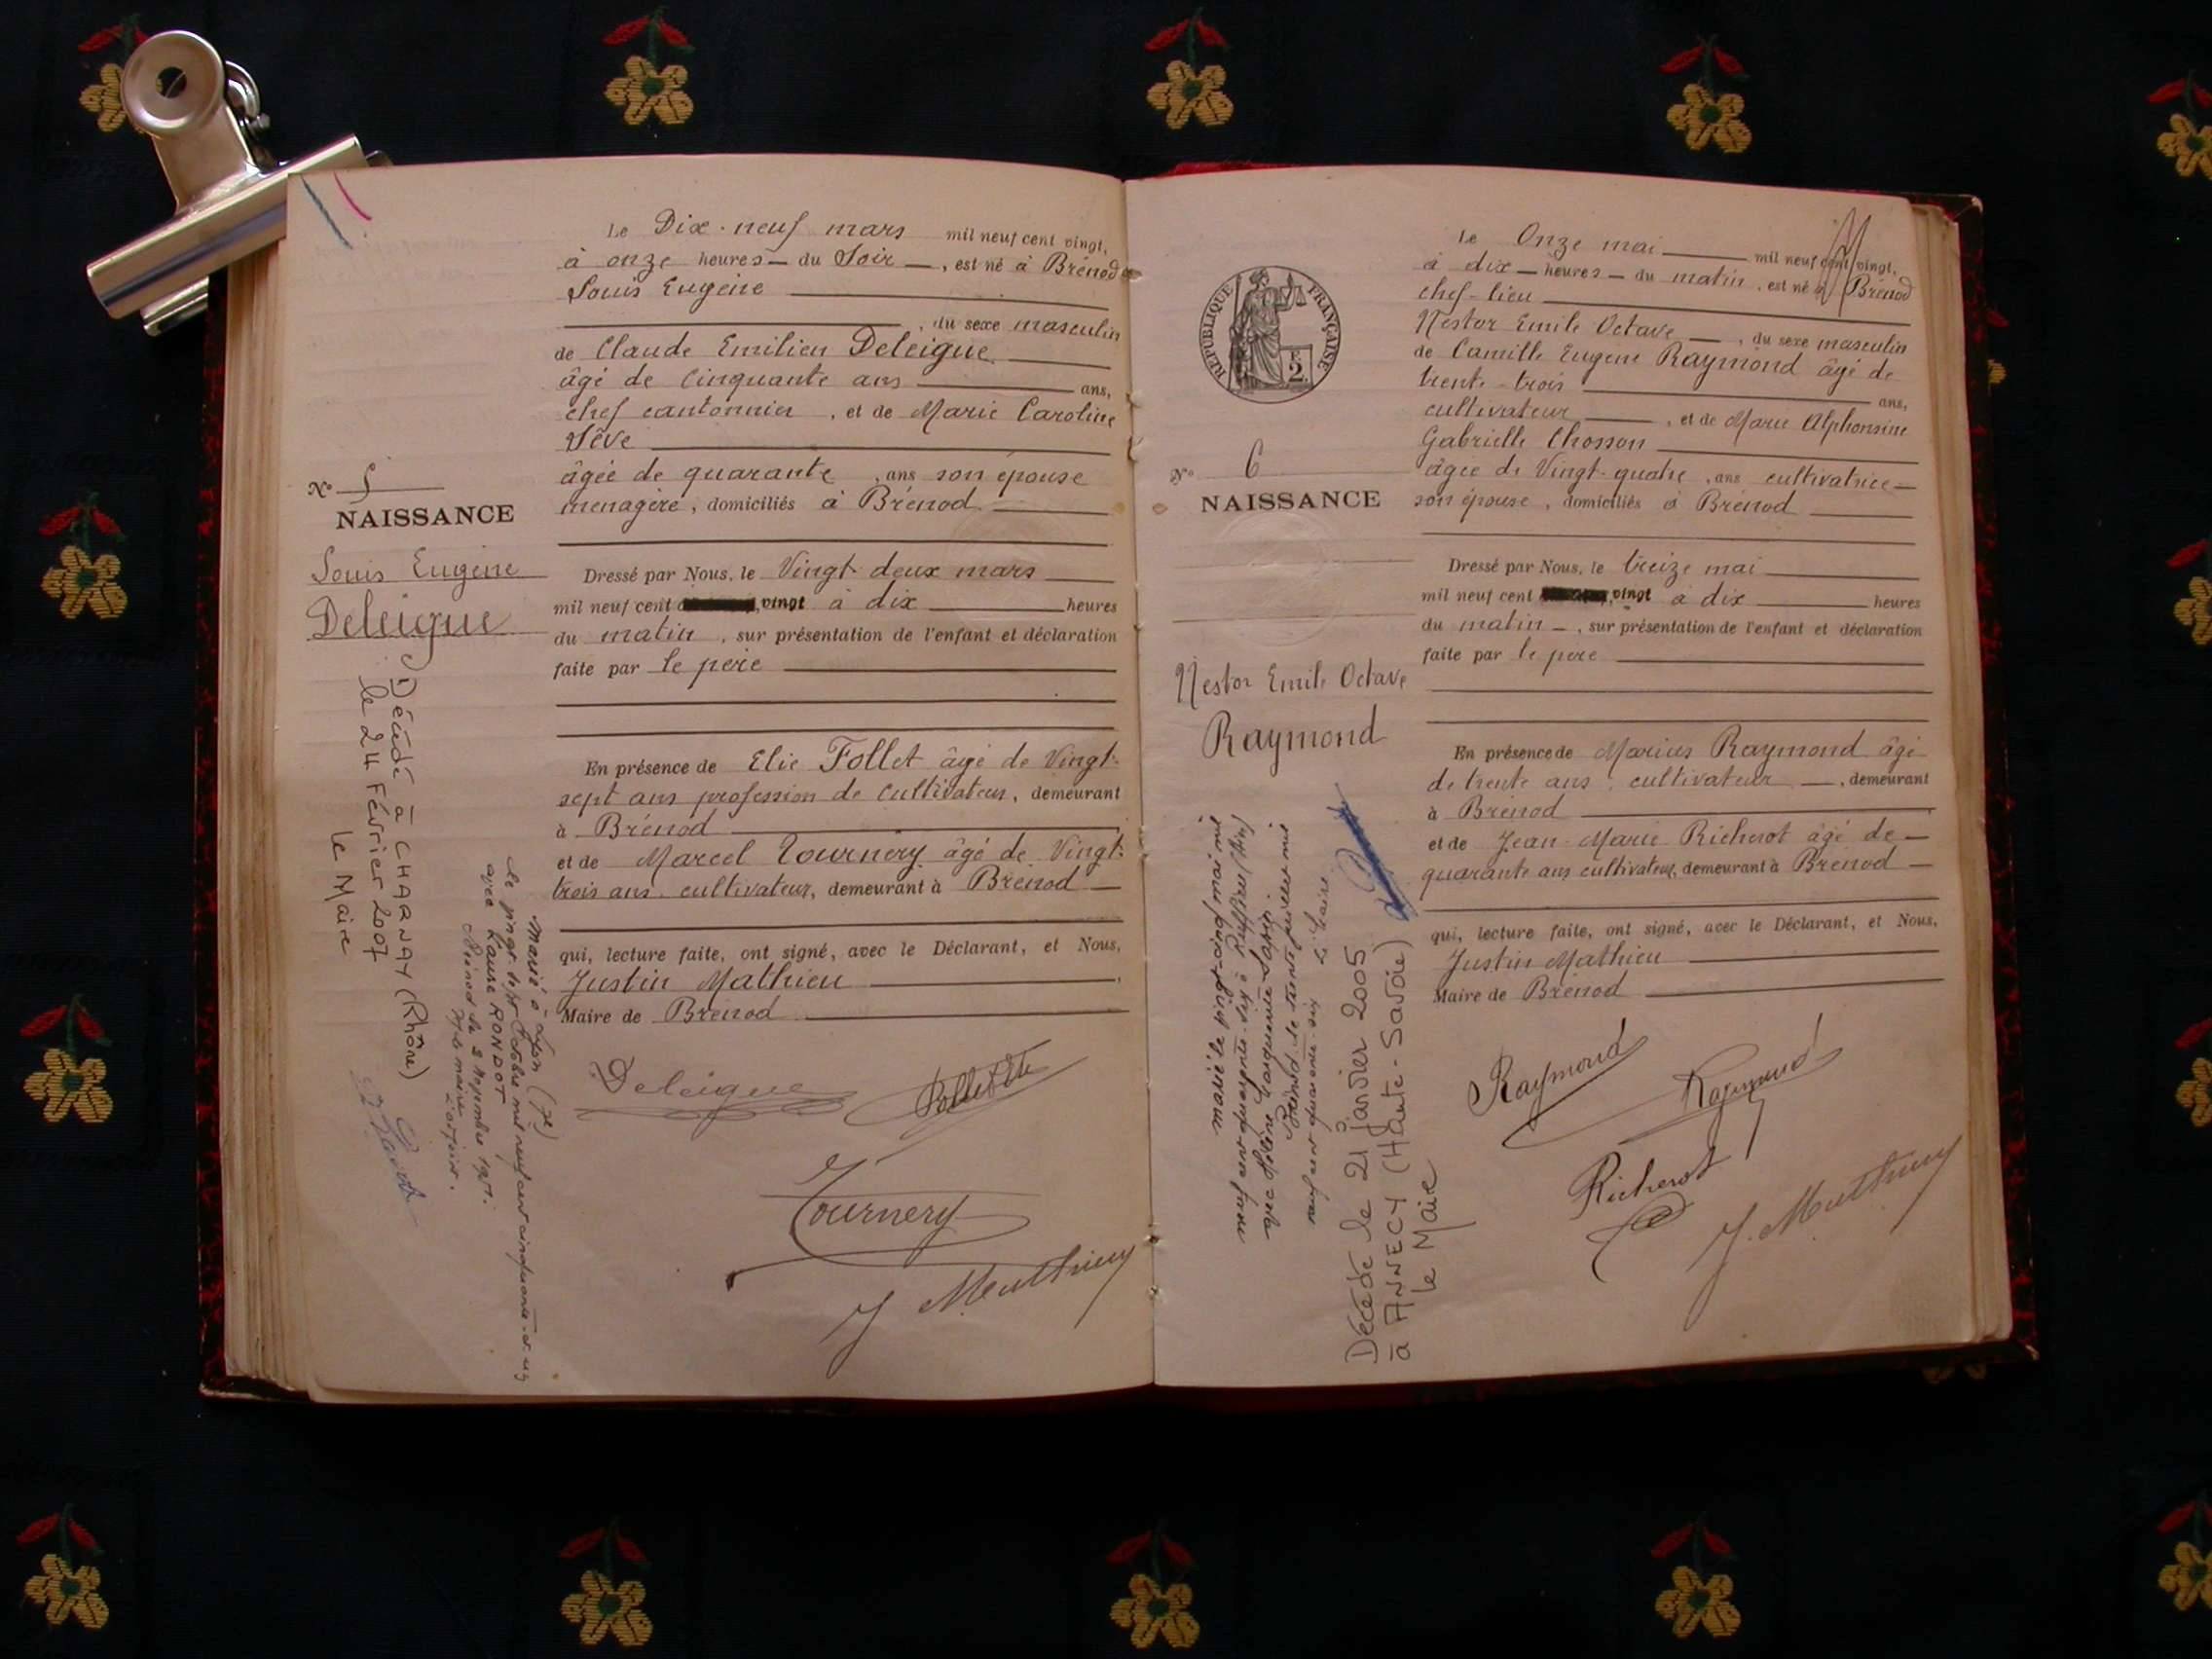 Le Dix-neuf mars mil neuf cent vingt,
à onze heures — du Soir —, est né à Brénod
Louis Eugène
, du sexe masculin
de Claude Emilien Deleigue
âgé de Cinquante ans ans,
chef cantonnier, et de Marie Caroline
Sève
âgée de quarante, ans son épouse
ménagère, domiciliés à Brénod
No 5
NAISSANCE
Louis Eugène
Deleigue
Dressé par Nous, le Vingt deux mars
mil neuf cent vingt à dix heures
du matin, sur présentation de l'enfant et déclaration
faite par le père
En présence de Elie Follet âgé de Vingt-
sept ans profession de Cultivateur, demeurant
à Brénod
et de Marcel Tournery âgé de Vingt-
trois ans cultivateur, demeurant à Brénod
qui, lecture faite, ont signé, avec le Déclarant, et Nous,
Justin Mathieu
Maire de Brénod
Décédé à CHARNAY (Rhône)
le 24 Février 2007
Le Maire
Marié à Lyon (7e)
le vingt-sept octobre mil neuf cent cinquante-et-un
avec Laure RONDOT
Brénod le 2 novembre 1951.
Deleigue
Tournery
J Mathieu
REPUBLIQUE FRANÇAISE
2
No 6
NAISSANCE
Nestor Emile Octave
Raymond
Le Onze mai mil neuf cent vingt,
à dix — heures — du matin, est né à Brénod
chef-lieu
Nestor Emile Octave —, du sexe masculin
de Camille Eugene Raymond âgé de
trente-trois ans,
cultivateur, et de Marie Alphonsine
Gabrielle Chosson
âgée de Vingt-quatre, ans cultivatrice —
son épouse, domiciliés à Brénod
Dressé par Nous, le treize mai
mil neuf cent vingt à dix heures
du matin —, sur présentation de l'enfant et déclaration
faite par le père
En présence de Marius Raymond âgé
de trente ans, cultivateur —, demeurant
à Brénod
et de Jean-Marie Richerot âgé de —
quarante ans cultivateur, demeurant à Brénod —
qui, lecture faite, ont signé, avec le Déclarant, et Nous,
Justin Mathieu
Maire de Brénod
marié le vingt-cinq mai mil
neuf cent quarante-six à Ruffieu (Ain)
avec Hélène
Brénod le trente juillet mil
neuf cent quarante-six Le Maire
Décédé le 21 janvier 2005
à ANNECY (Haute-Savoie)
Le Maire
Raymond
Raymond
Richerot
J. Mathieu